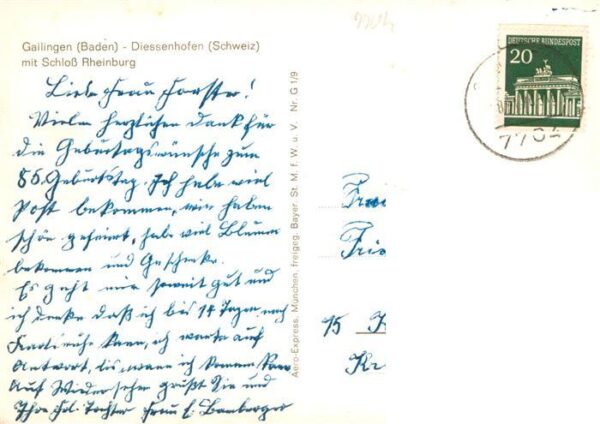 Gailingen (Baden) - Diessenhofen (Schweiz)
mit Schloß Rheinburg
DEUTSCHE BUNDESPOST
20
Liebe Frau Forster!
Vielen herzlichen Dank für
die Geburtagswünsche zum
85. Geburtstag. Ich habe viel
Post bekommen, wir haben
schön gefeiert, habe viel Blumen
bekommen und Geschenke.
Es geht mir soweit gut und
ich denke daß ich bis 14 Tagen nach
Karlsruhe kann, ich warte auf
Antwort, bis wann ich kommen kann
Auf Wiedersehen grüßt Sie und
Ihre Frl. Tochter Frau E. Bamberger
Aero-Express, München, freigeg. Bayer. St. M. f. W. u. V. Nr. G 1/9
75